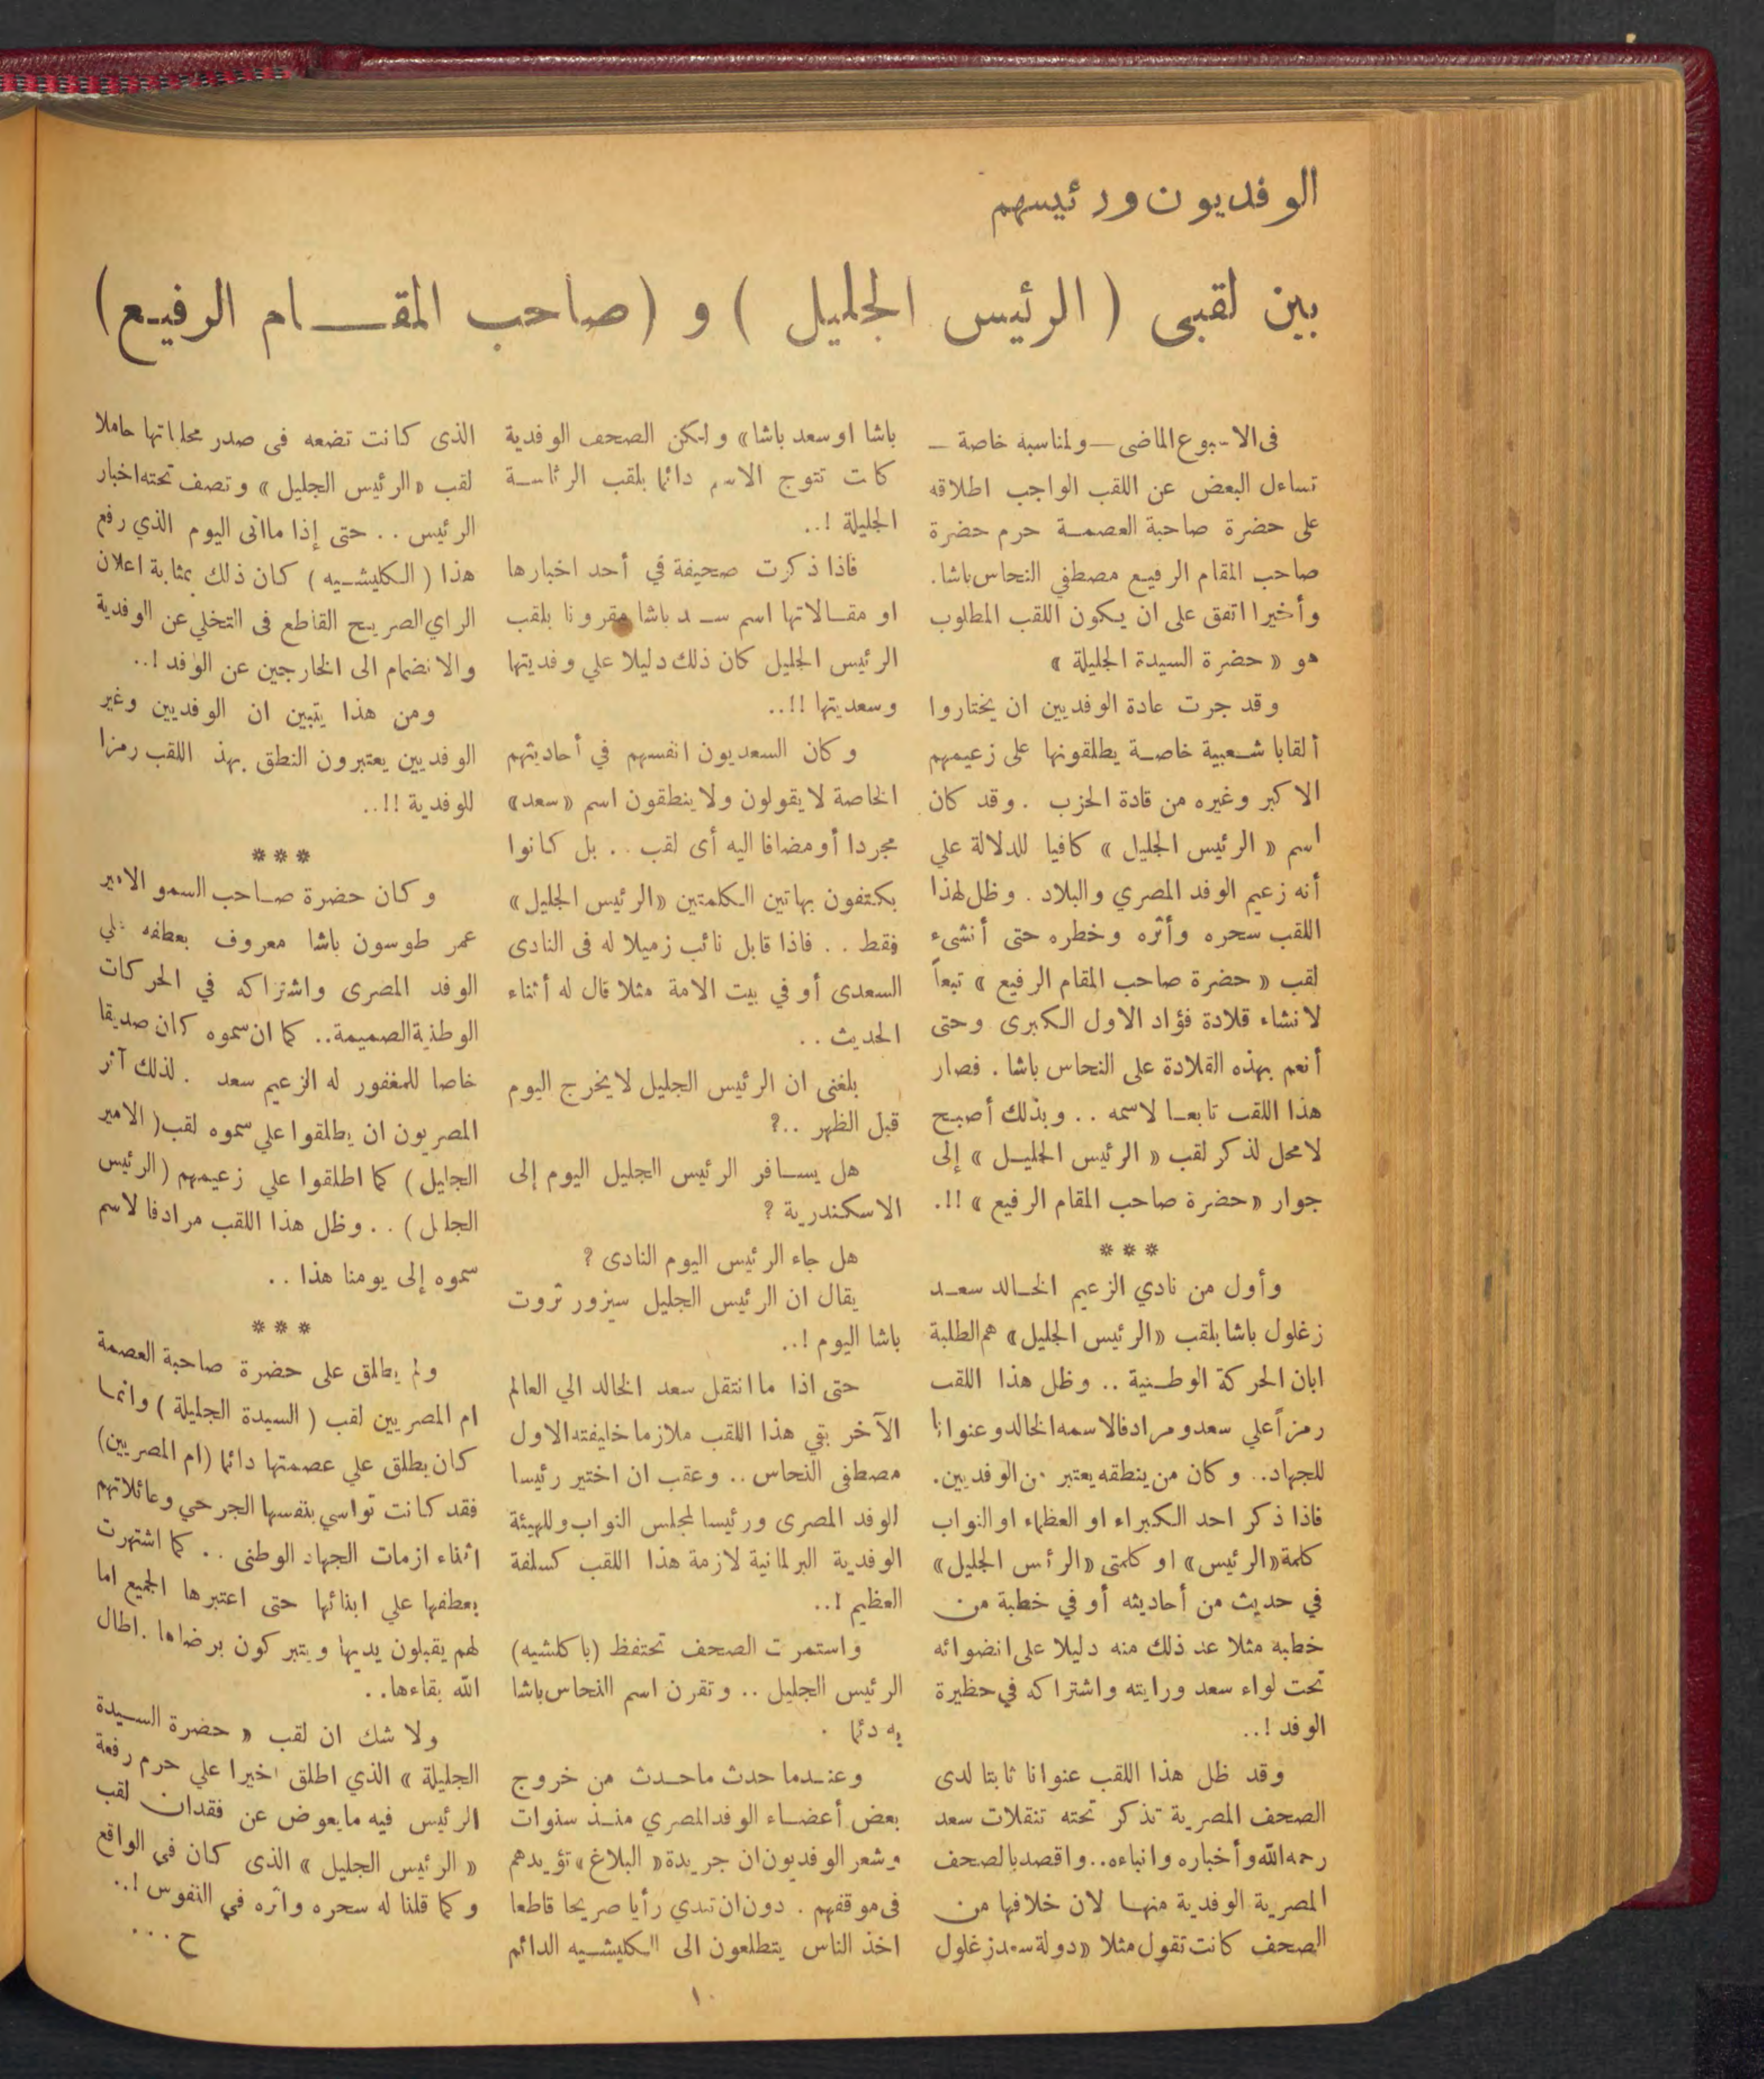 الوفديون ورئيسهم
بين لقبى ( الرئيس الجليل ) و (صاحب المقـــام الرفيع)
فى الاسبوع الماضى — ولمناسبة خاصة —
تساءل البعض عن اللقب الواجب اطلاقه
على حضرة صاحبة العصمة حرم حضرة
صاحب المقام الرفيع مصطفي النحاس باشا.
وأخيرا اتفق على ان يكون اللقب المطلوب
هو « حضرة السيدة الجليلة »
وقد جرت عادة الوفديين ان يختاروا
ألقابا شعبية خاصة يطلقونها على زعيمهم
الاكبر وغيره من قادة الحزب . وقد كان
اسم « الرئيس الجليل » كافيا للدلالة علي
أنه زعيم الوفد المصري والبلاد . وظل لهذا
اللقب سحره وأثره وخطره حتى أنشىء
لقب « حضرة صاحب المقام الرفيع » تبعاً
لانشاء قلادة فؤاد الاول الكبرى وحتى
أنعم بهذه القلادة على النحاس باشا . فصار
هذا اللقب تابعا لاسمه . . وبذلك أصبح
لا محل لذكر لقب « الرئيس الجليل » إلى
جوار « حضرة صاحب المقام الرفيع » !!.
***
وأول من نادي الزعيم الخالد سعد
زغلول باشا بلقب «الرئيس الجليل» هم الطلبة
ابان الحركة الوطنية .. وظل هذا اللقب
رمزاً علي سعد ومرادفا لاسمه الخالد وعنوانا
للجهاد.. وكان من ينطقه يعتبر من الوفديين.
فاذا ذكر احد الكبراء او العظماء او النواب
كلمة «الرئيس» او كلمتى «الرئس الجليل»
في حديث من أحاديثه أو في خطبة من
خطبه مثلا عد ذلك منه دليلا على انضوائه
تحت لواء سعد ورايته واشتراكه في حظيرة
الوفد !..
وقد ظل هذا اللقب عنوانا ثابتا لدى
الصحف المصرية تذكر تحته تنقلات سعد
رحمه الله وأخباره وانباءه.. واقصد بالصحف
المصرية الوفدية منها لان خلافها من
الصحف كانت تقول مثلا «دولة سعد زغلول
باشا او سعد باشا» ولكن الصحف الوفدية
كانت تتوج الاسم دائما بلقب الرئاسة
الجليلة !..
فاذا ذكرت صحيفة في أحد اخبارها
او مقالاتها اسم سعد باشا مقرونا بلقب
الرئيس الجليل كان ذلك دليلا علي وفديتها
وسعديتها !!..
وكان السعديون انفسهم في أحاديثهم
الخاصة لا يقولون ولا ينطقون اسم «سعد»
مجردا أو مضافا اليه أى لقب . . بل كانوا
يكتفون بهاتين الكلمتين «الرئيس الجليل»
فقط . . فاذا قابل نائب زميلا له فى النادى
السعدى أو في بيت الامة مثلا قال له أثناء
الحديث . .
بلغنى ان الرئيس الجليل لا يخرج اليوم
قبل الظهر ..؟
هل يسافر الرئيس الجليل اليوم إلى
الاسكندرية ؟
هل جاء الرئيس اليوم النادى ؟
يقال ان الرئيس الجليل سيزور ثروت
باشا اليوم !..
حتى اذا ما انتقل سعد الخالد الي العالم
الآخر بقي هذا اللقب ملازما خليفته الاول
مصطفى النحاس . . وعقب ان اختير رئيسا
للوفد المصرى ورئيسا لمجلس النواب وللهيئة
الوفدية البرلمانية لازمة هذا اللقب كسلفة
العظيم !..
واستمرت الصحف تحتفظ (باكلشيه)
الرئيس الجليل .. وتقرن اسم النحاس باشا
به دئما .
وعندما حدث ماحدث من خروج
بعض أعضاء الوفد المصري منذ سنوات
وشعر الوفديون ان جريدة « البلاغ » تؤيدهم
فى موقفهم . دون ان تبدي رأيا صريحا قاطعا
اخذ الناس يتطلعون الى الكليشيه الدائم
الذى كانت تضعه فى صدر محلياتها حاملا
لقب « الرئيس الجليل » وتصف تحته اخبار
الرئيس . . حتى إذا ما اتى اليوم الذي رفع
هذا ( الكليشيه ) كان ذلك بمثابة اعلان
الراي الصريح القاطع فى التخلي عن الوفدية
والانضمام الى الخارجين عن الوفد !..
ومن هذا يتبين ان الوفديين وغير
الوفديين يعتبرون النطق بهذ اللقب رمزا
للوفدية !!..
***
وكان حضرة صاحب السمو الامير
عمر طوسون باشا معروف بعطفه علي
الوفد المصرى واشتراكه في الحركات
الوطنية الصميمة.. كما ان سموه كان صديقا
خاصا للمغفور له الزعيم سعد . لذلك آثر
المصريون ان يطلقوا علي سموه لقب ( الامير
الجليل ) كما اطلقوا علي زعيمهم (الرئيس
الجليل ) . . وظل هذا اللقب مرادفا لاسم
سموه إلى يومنا هذا . .
***
ولم يطلق على حضرة صاحبة العصمة
ام المصريين لقب ( السيدة الجليلة ) وانما
كان يطلق علي عصمتها دائما (ام المصريين)
فقد كانت تواسي بنفسها الجرحي وعائلاتهم
اثناء ازمات الجهاد الوطنى . . كما اشتهرت
بعطفها علي ابنائها حتى اعتبرها الجميع اما
لهم يقبلون يديها ويتبركون برضاها . اطال
الله بقاءها..
ولا شك ان لقب « حضرة السيدة
الجليلة » الذي اطلق اخيرا علي حرم رفعة
الرئيس فيه مايعوض عن فقدان لقب
« الرئيس الجليل » الذى كان فى الواقع
وكما قلنا له سحره واثره في النفوس !..
ح . . .
١٠